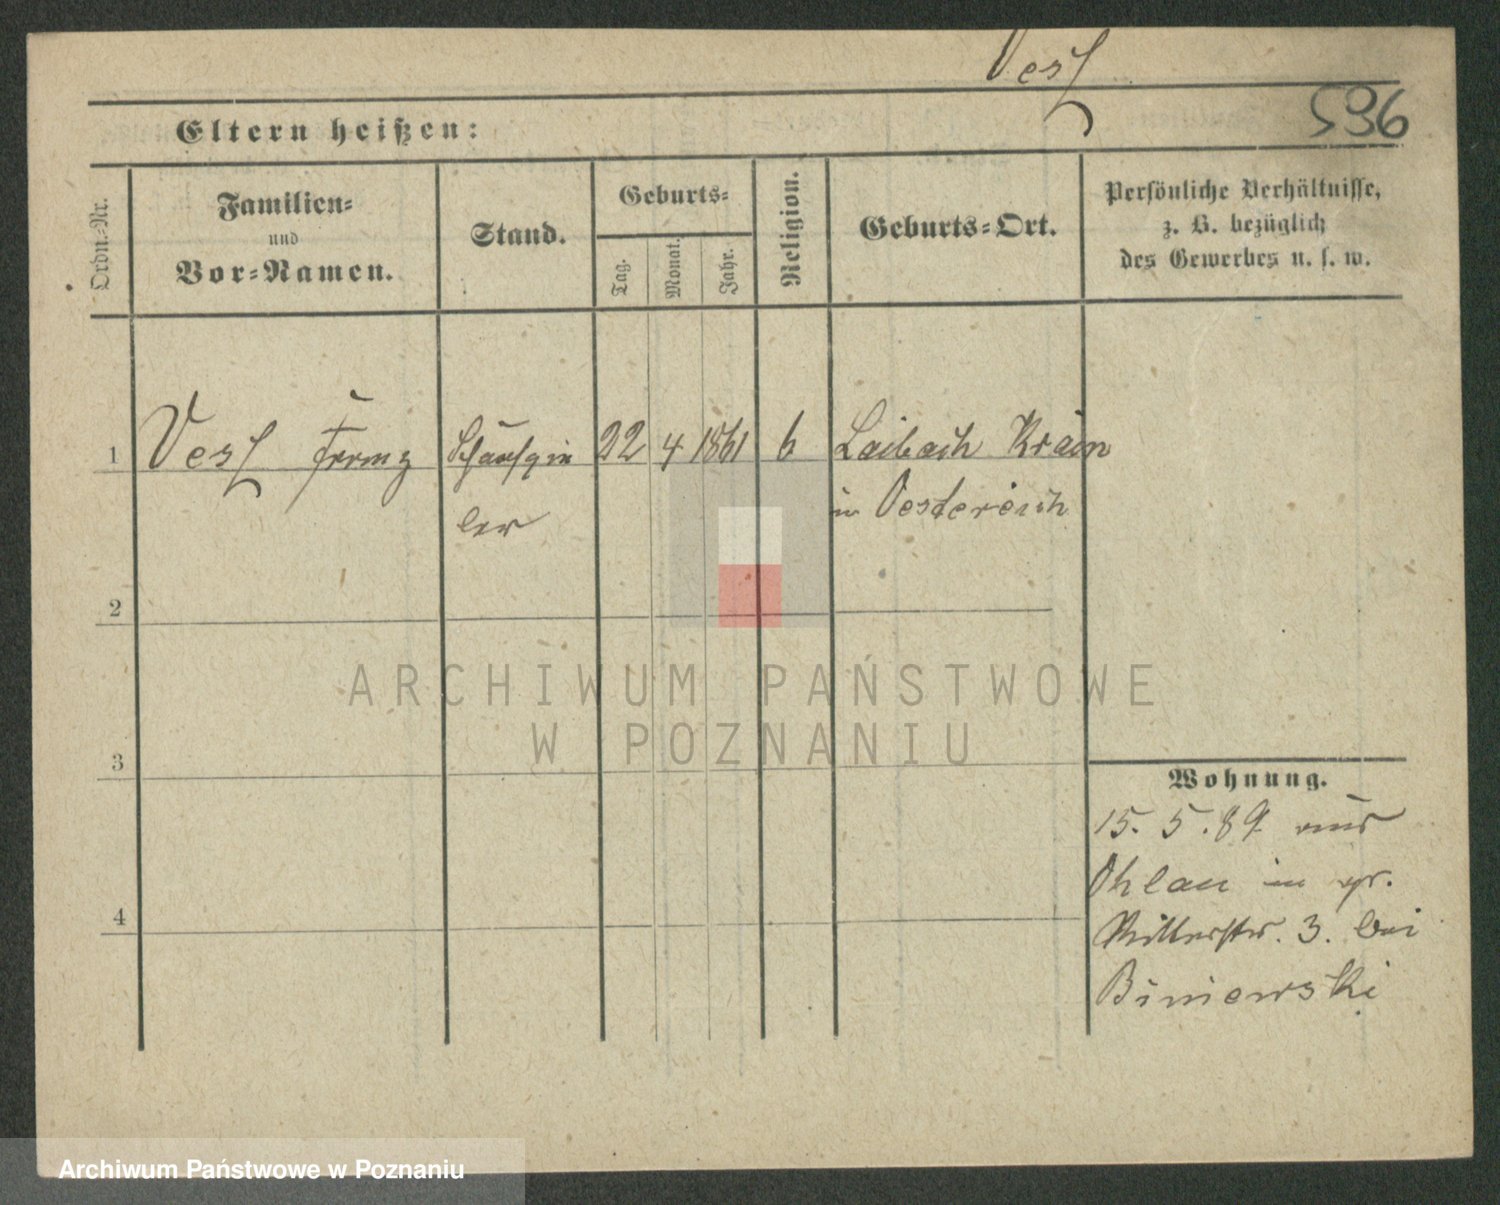 Vesl
596
Eltern heißen:
Ordn.-Nr.
Familien-
und
Vor-Namen.
Stand.
Geburts-
Tag.
Monat.
Jahr.
Religion.
Geburts-Ort.
Persönliche Verhältnisse,
z. B. bezüglich
des Gewerbes u. s. w.
1
Vesl Franz
Schauspie
ler
22
4
1861
Laibach Krain
in Oestereich
2
3
4
Wohnung.
15. 5. 89 aus
Ohlau in gr.
Ritterstr. 3. bei
Biniewski
ARCHIWUM PAŃSTWOWE
W POZNANIU
Archiwum Państwowe w Poznaniu